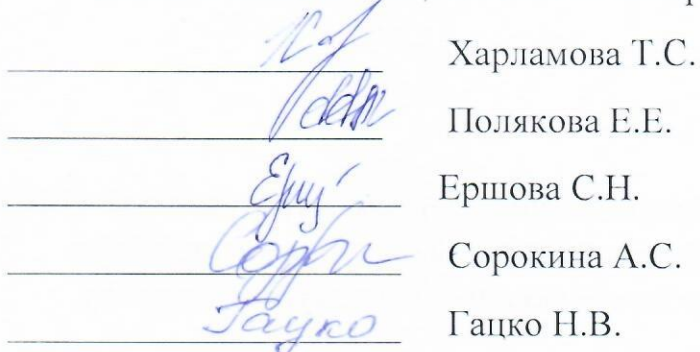 Харламова Т.С.
Полякова Е.Е.
Ершова С.Н.
Сорокина А.С.
Гацко Гацко Н.В.